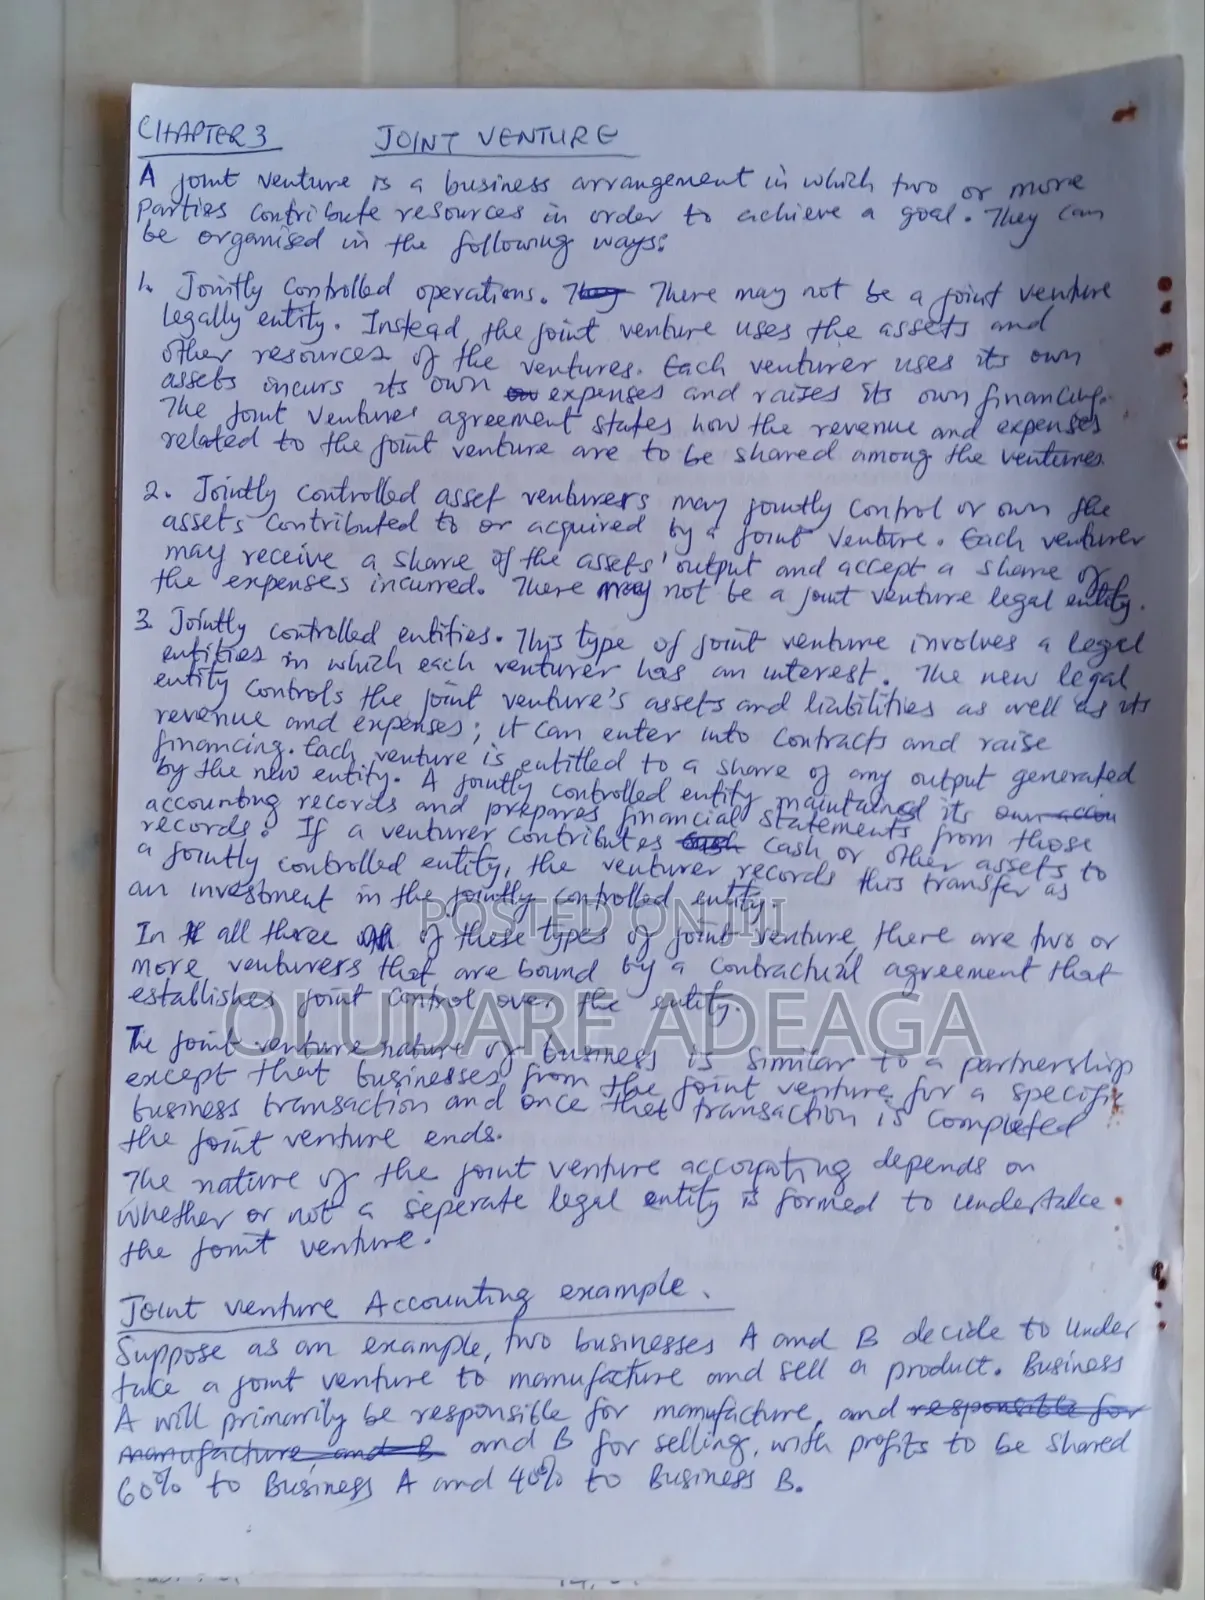 CHAPTER 3 JOINT VENTURE
A joint venture is a business arrangement in which two or more
parties contribute resources in order to achieve a goal. They can
be organised in the following ways:
1. Jointly controlled operations. They There may not be a joint venture
legally entity. Instead, the joint venture uses the assets and
other resources of the ventures. Each venturer uses its own
assets incurs its own expenses and raises its own financing.
The joint ventures agreement states how the revenue and expenses
related to the joint venture are to be shared among the ventures.
2. Jointly controlled asset venturers may jointly control or own the
assets contributed to or acquired by a joint venture. Each venturer
may receive a share of the assets' output and accept a share of
the expenses incurred. There may not be a joint venture legal entity.
3. Jointly controlled entities. This type of joint venture involves a legal
entities in which each venturer has an interest. The new legal
entity controls the joint venture's assets and liabilities as well as its
revenue and expenses; it can enter into contracts and raise
financing. Each venture is entitled to a share of any output generated
by the new entity. A jointly controlled entity maintained its own accou
accounting records and prepares financial statements from those
records. If a venturer contributes cash cash or other assets to
a jointly controlled entity, the venturer records this transfer as
an investment in the jointly controlled entity.
POSTED ON JIJI
In all three of these types of joint venture, there are two or
more venturers that are bound by a contractual agreement that
establishes joint control over the entity.
OLUDARE ADEAGA
The joint venture nature of business is similar to a partnership
except that businesses from the joint venture for a specific
business transaction and once that transaction is completed
the joint venture ends.
The nature of the joint venture accounting depends on
whether or not a seperate legal entity is formed to undertake
the joint venture.
Joint venture Accounting example.
Suppose as an example, two businesses A and B decide to under
take a joint venture to manufacture and sell a product. Business
A will primarily be responsible for manufacture, and responsible for
manufacture, and B and B for selling, with profits to be shared
60% to Business A and 40% to Business B.